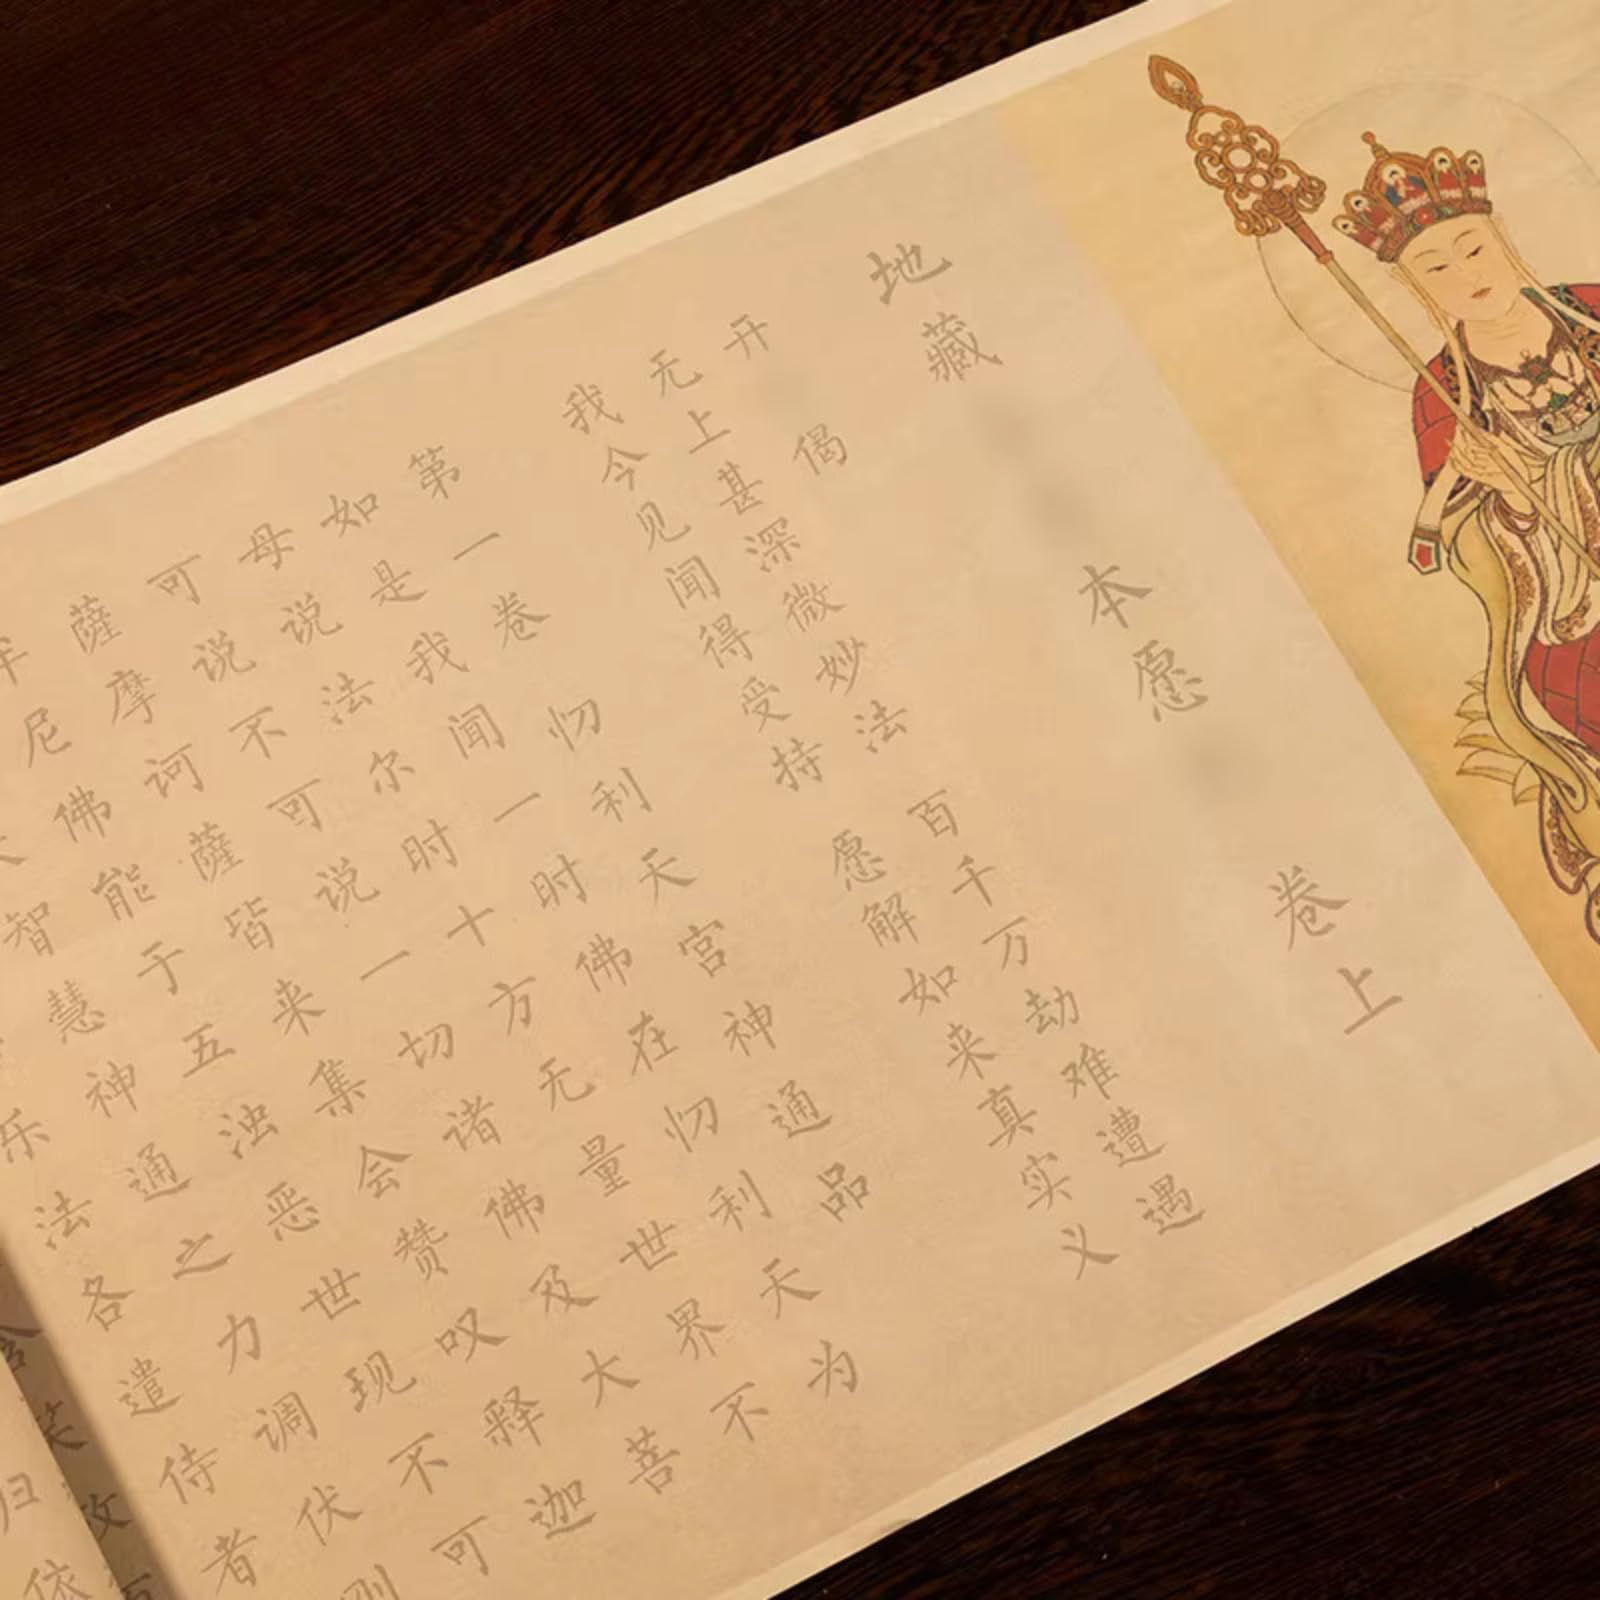 地藏 本愿 卷上
开 偈
无上甚深微妙法 百千万劫难遭遇
我今见闻得受持 愿解如来真实义
第一卷 忉利天宫神通品
如是我闻一时佛在忉利天为
母说法尔时十方无量世界不
可说不可说一切诸佛及大菩
薩摩诃薩皆来集会赞叹释迦
牟尼佛能于五浊恶世现不可
智慧神通之力调伏刚
乐法各遣侍者
含笑放百
归依